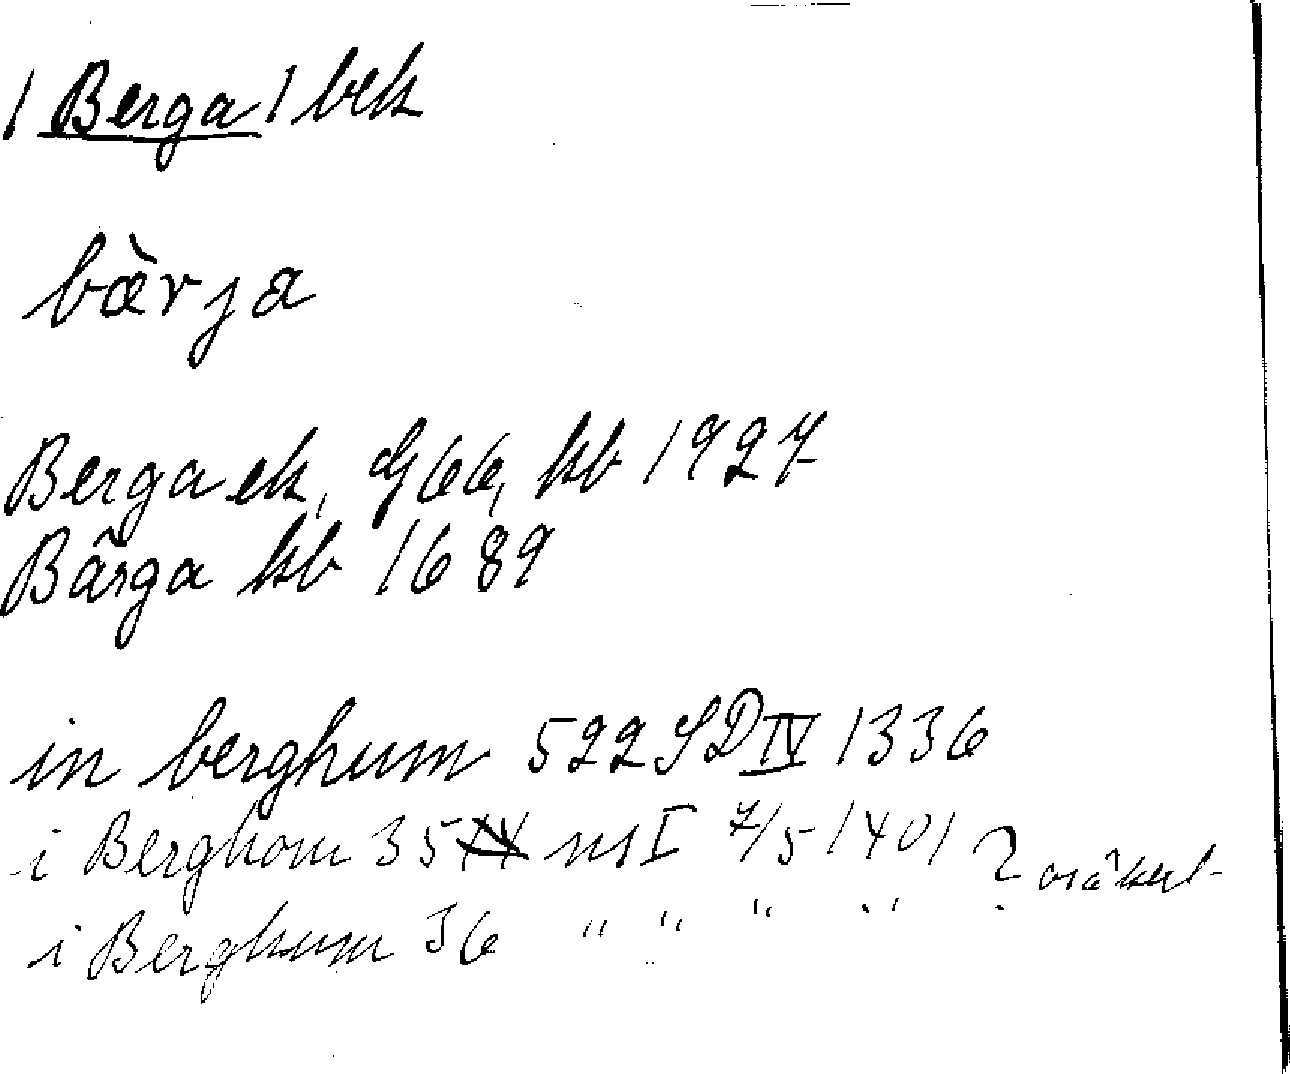 1 Berga 1 bek
bæ̀rja
Berga ek, G66, kb 1927
Bärga kb 1689
in berghum 522 SD IV 1336
i Berghom 35 ns I 7/5 1401 ? osäkert
i Berghum 36 " " " "